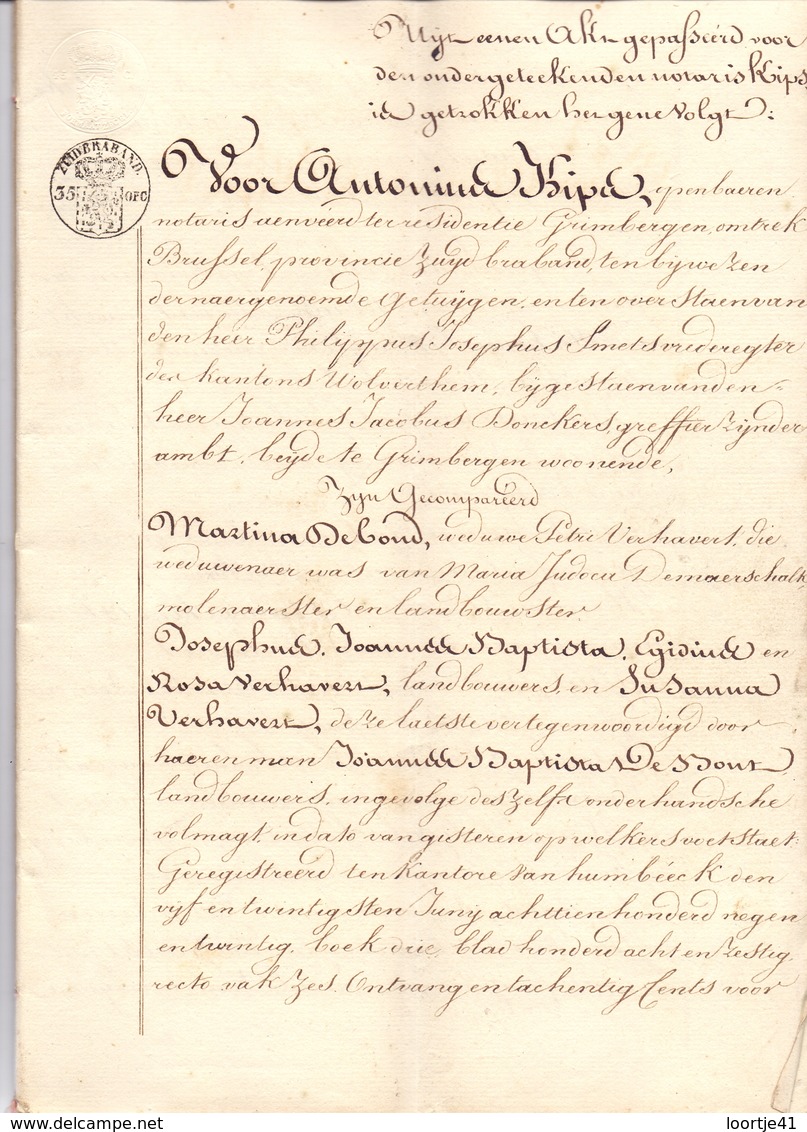 Uijt eenen Akt gepasseerd voor
den ondergeteekenden notaris Kips,
is getrokken het gene Volgt:
ZUIDBRABAND.
35 OPC
Voor Antonius Kips, openbaeren
notaris aenveerd ter residentie Grimbergen, omtrek
Brussel, provincie Zuyd braband, ten bijwezen
der naergenoemde Getuijgen, en ten overstaen van
den heer Philippus Josephus Smets vrederegter
des kantons Wolverthem, bijgestaen van den =
heer Joannes Jacobus Donckers, greffier zijnder
ambt, beijde te Grimbergen woonende,
Zijn Gecompareerd
Martina De Cond, weduwe Petri Verhavert, die
weduwenaer was van Maria Judoca Demaerschalk,
molenaerster en landbouwster.
Josephus, Joannes Baptista, Egidius en
Rosa Verhavert, landbouwers, en Susanna
Verhavert, deze laetste vertegenwoordigd door
haeren man Joannes Baptista De Bont
landbouwers, ingevolge des zelfs onderhandsche
volmagt, in dato van gisteren op welkers voet staet:
Geregistreerd ten kantore van humbéeck den
vijf en twintigsten Junij achttien honderd negen
en twintig, boek drie, blad honderd acht en zestig,
recto vak zes. Ontvangen tachentig Cents voor
loortje41